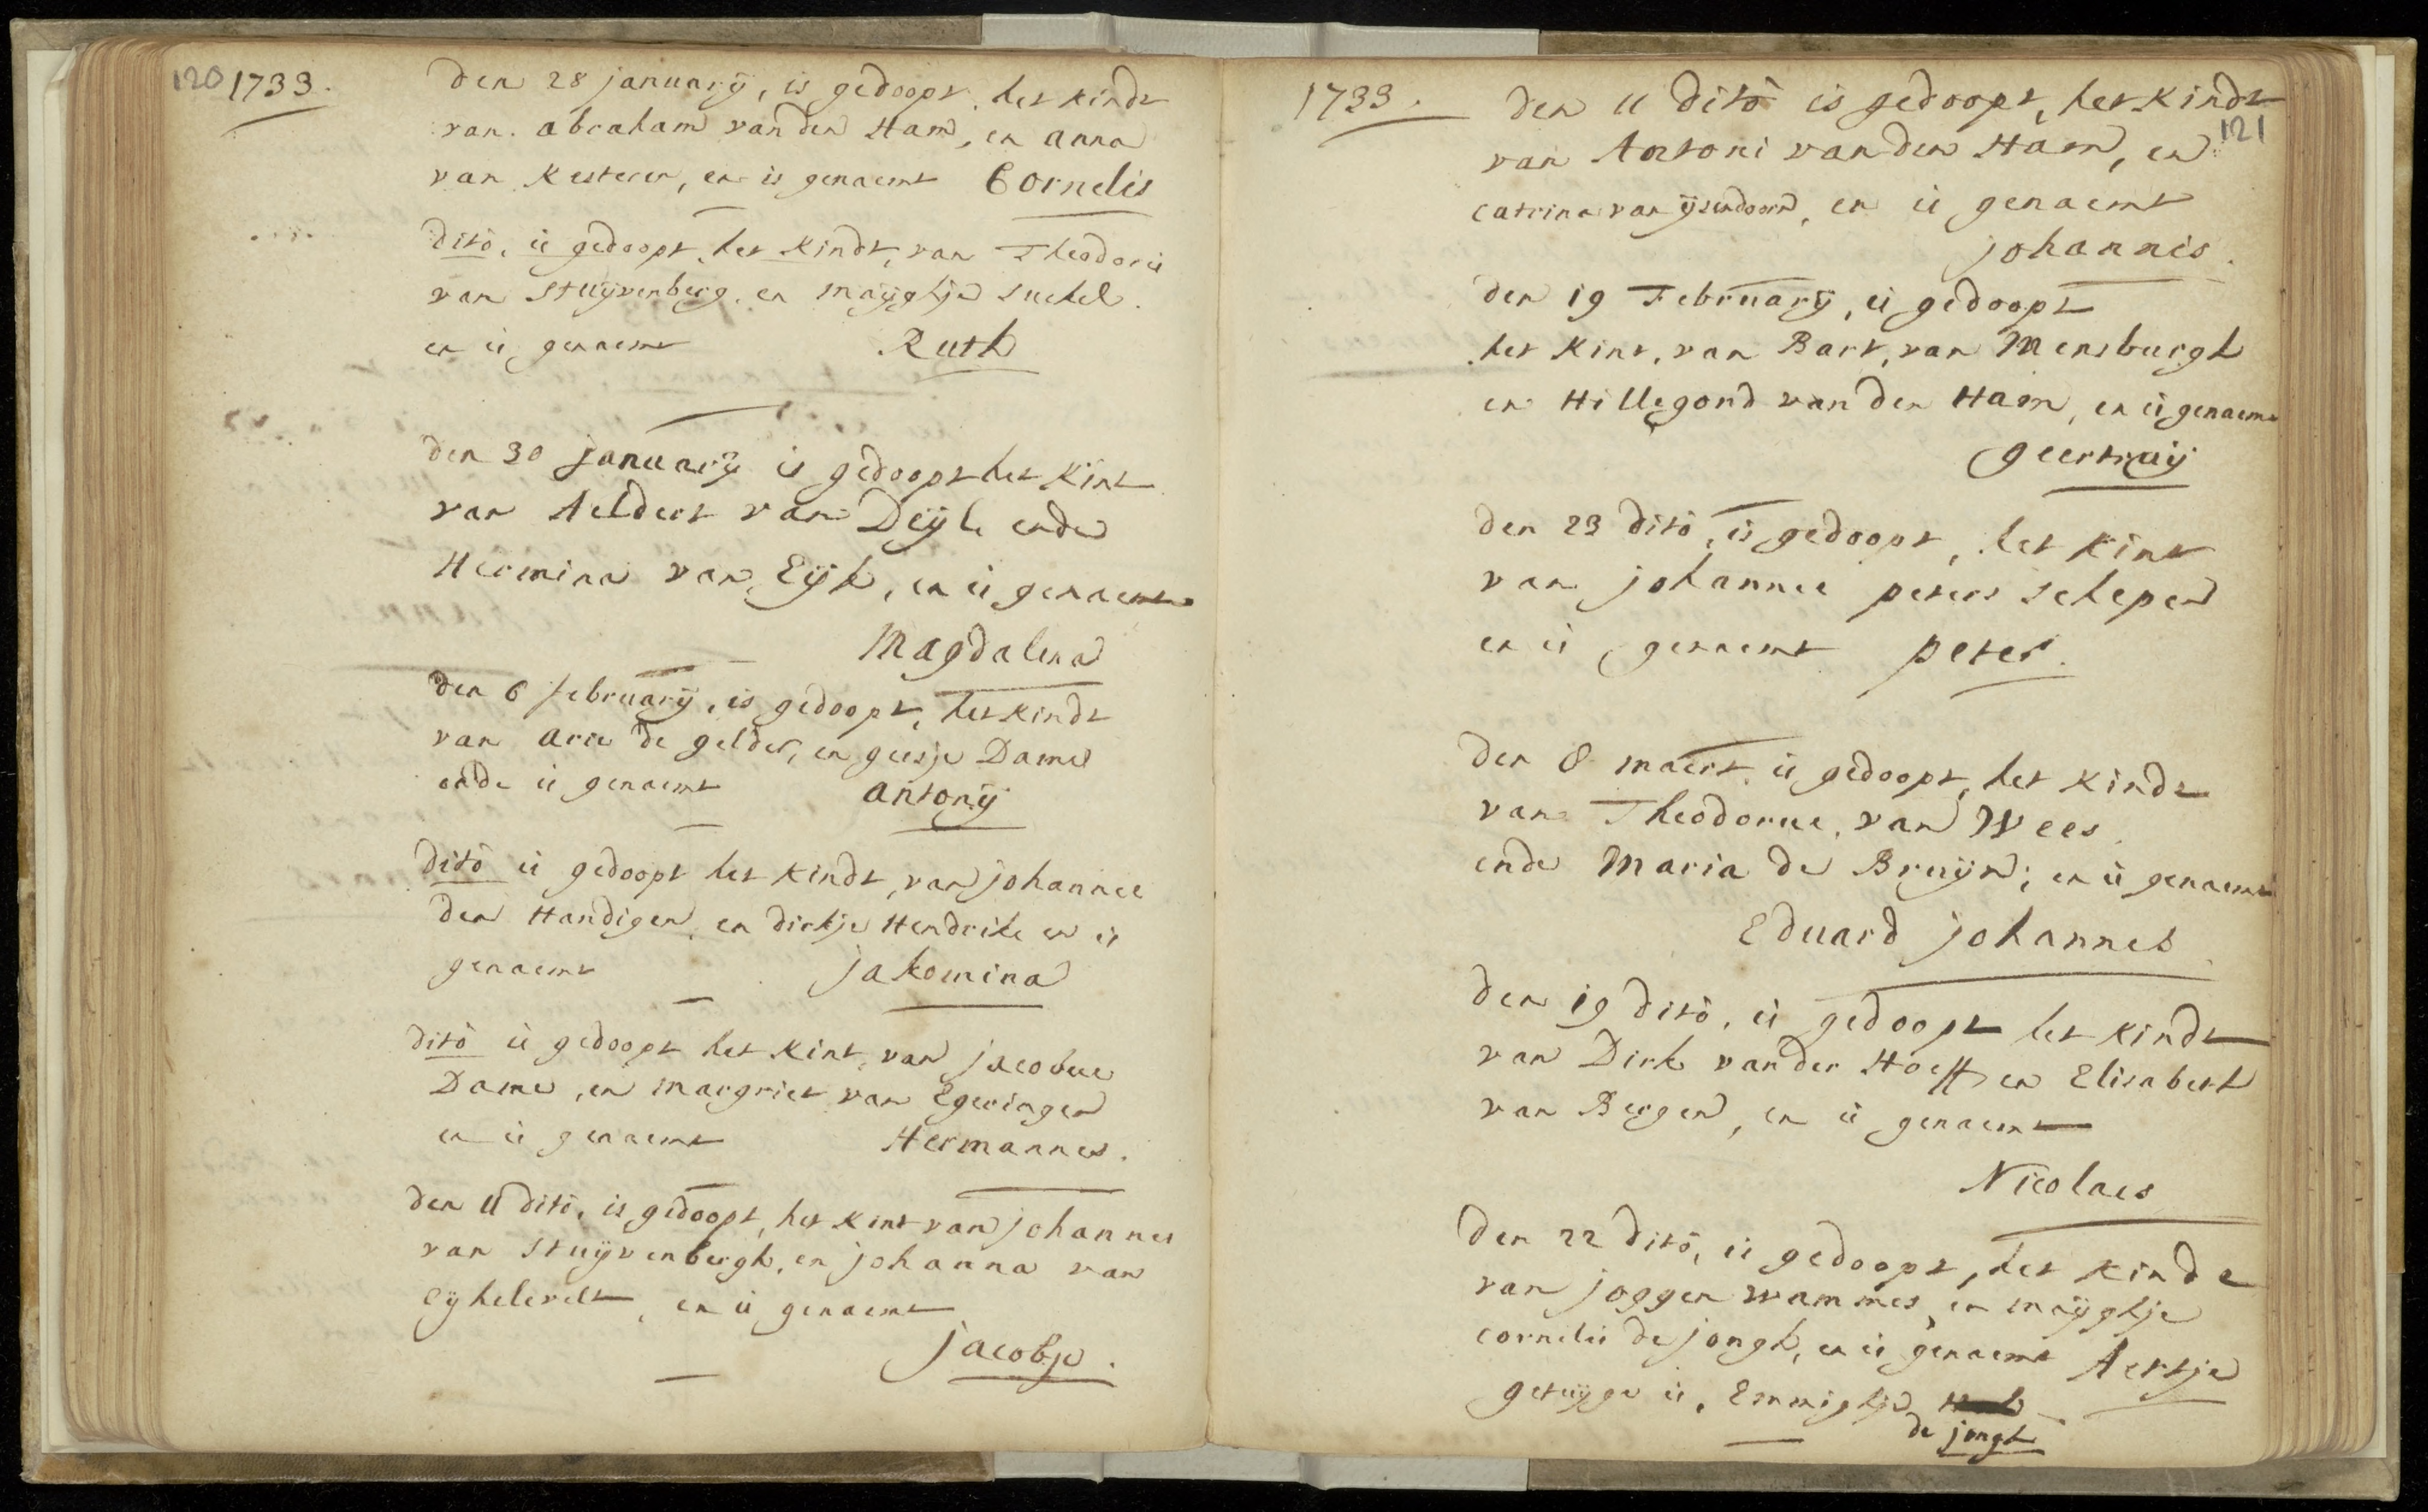 120 1733.
den 28 januarij, is gedoopt, het kindt
van abraham van den Ham, en anna
van Kesteren, en is genaemt Cornelis
dito, is gedoopt, het kindt, van Theodoris
van Stuijvenberg, en maijghje suchel.
en is genaemt Ruth
den 30 januarij is gedoopt het kint
van Aeldert van Deijl ende
Hermina van Eijk, en is genaemt
Magdalena
den 6 februarij, is gedoopt, het kindt
van arie de gelder, en geesje Dame
ende is genaemt antonij
dito is gedoopt het kindt, van johannes
den Handigen, en dirkje Hendriks en is
genaemt jakomina
dito is gedoopt het kint, van jacobus
Dame, en margriet van Egeringen
en is genaemt Hermannes.
den 11 dito, is gedoopt, het kint van johannes
van Stuijvenbergh, en johanna van
eijkelevelt, en is genaemt
jacobje.
1733. den 11 dito is gedoopt, het kindt
121
van Antoni van den Ham, en
catrina van ijsendoorn, en is genaemt
johannis.
den 19 Februarij, is gedoopt
het kint, van Bart, van Mensburgh
en Hillegond van den Ham, en is genaemt
geertruij
den 23 dito, is gedoopt, het kint
van johannes peters schepen
en is genaemt peter.
den 8 maert is gedoopt, het kindt
van Theodorus, van Wees
ende Maria de Bruijn; en is genaemt
Eduard johannes
den 19 dito, is gedoopt het kindt
van Dirk van der Hoeff en Elisabeth
van Bergen, en is genaemt
Nicolaes
den 22 dito, is gedoopt, het kindt
van joggen wammes, en maijghje
cornelis de jongh, en is genaemt Aertje
getuijge is, Emmighje
de jongh